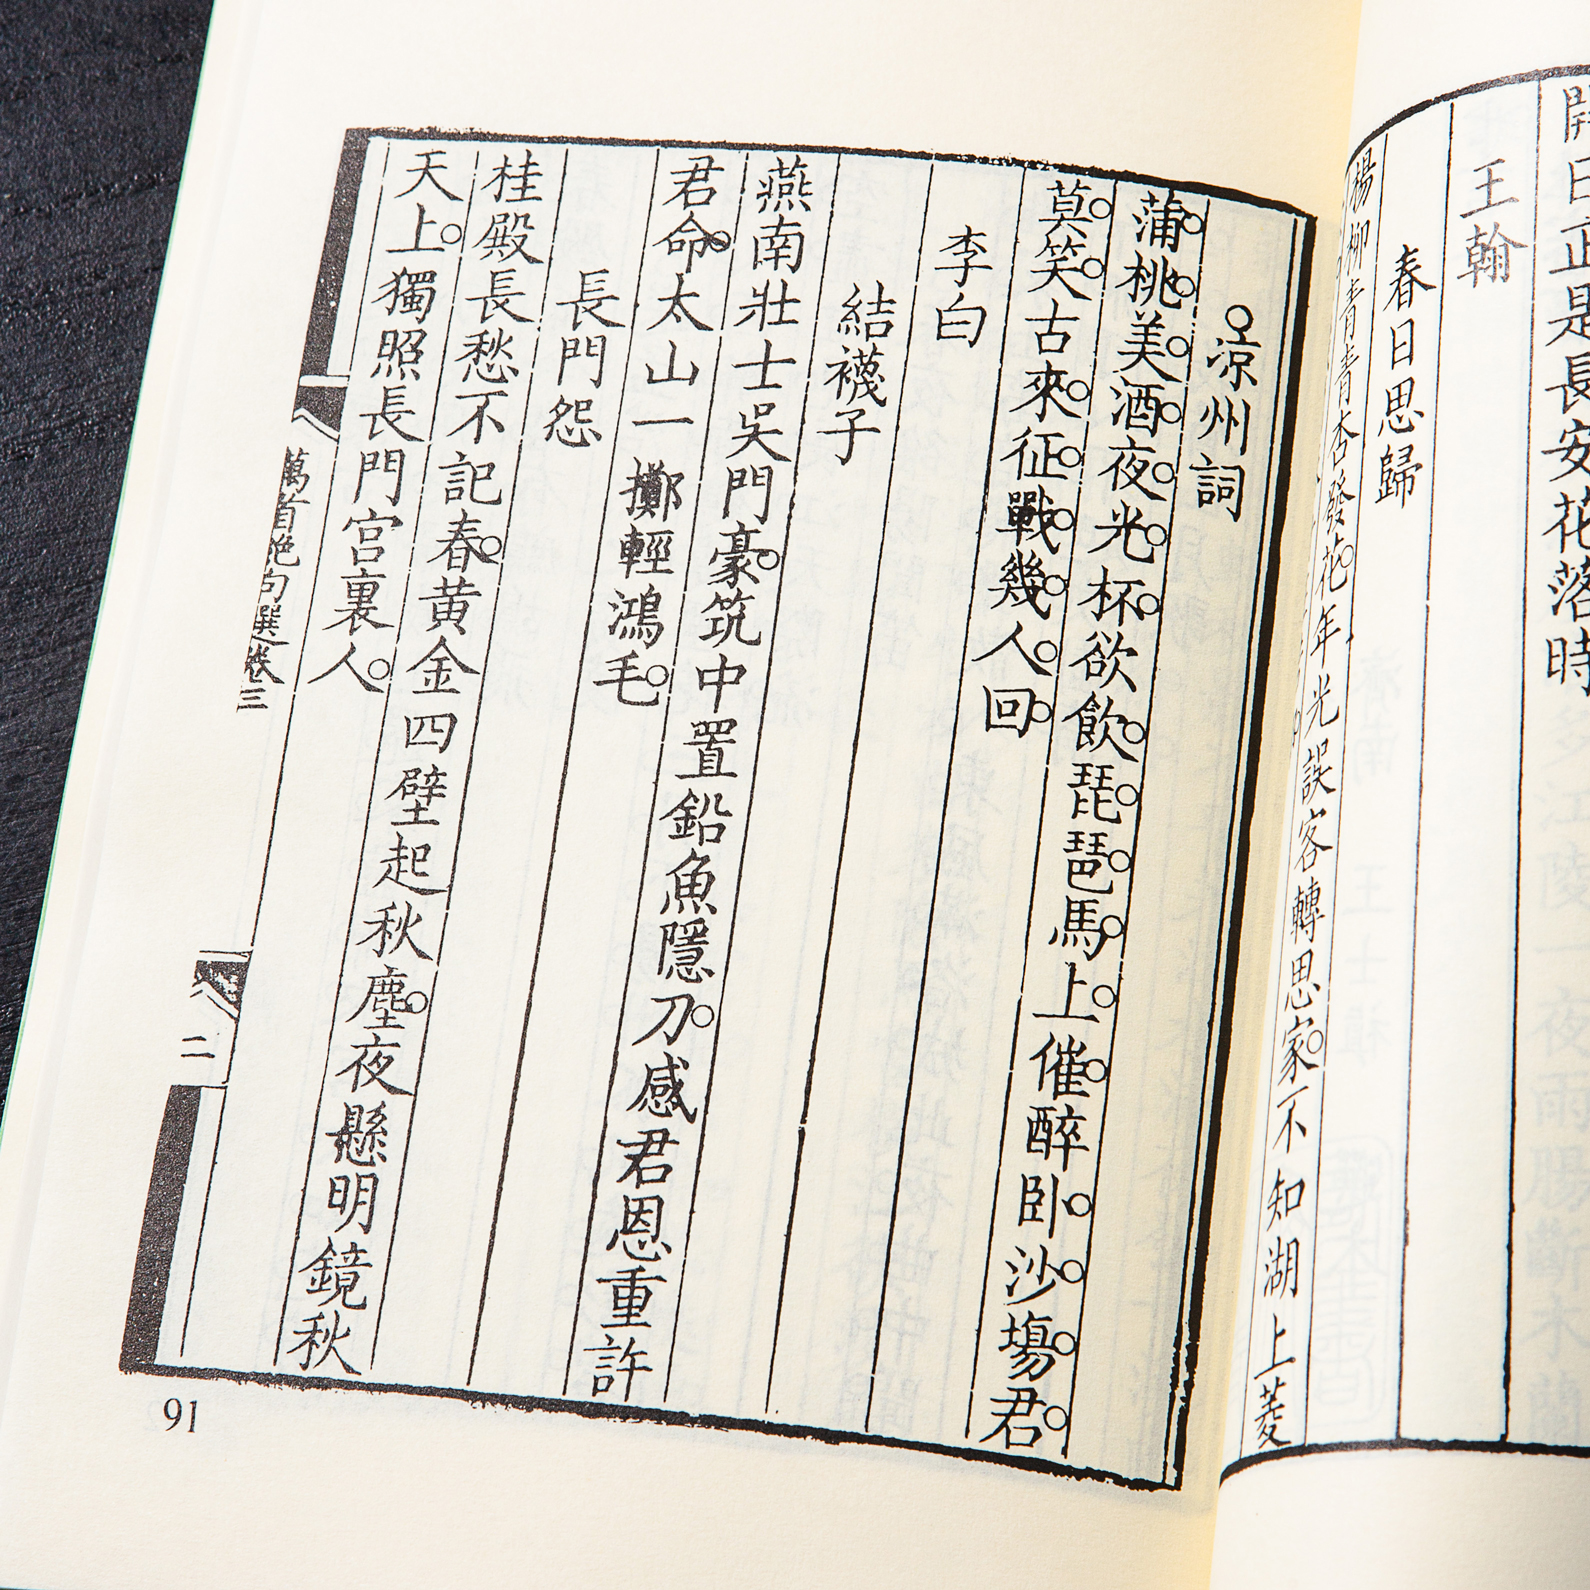 開日正是長安花落時
王翰
春日思歸
楊柳青青杏發花年光誤客轉思家不知湖上菱
涼州詞
蒲桃美酒夜光杯欲飲琵琶馬上催醉臥沙場君
莫笑古來征戰幾人回
李白
結襪子
燕南壯士吳門豪筑中置鉛魚隱刀感君恩重許
君命太山一擲輕鴻毛
長門怨
桂殿長愁不記春黃金四壁起秋塵夜懸明鏡秋
天上獨照長門宮裏人
萬首絕句選卷三
二
91